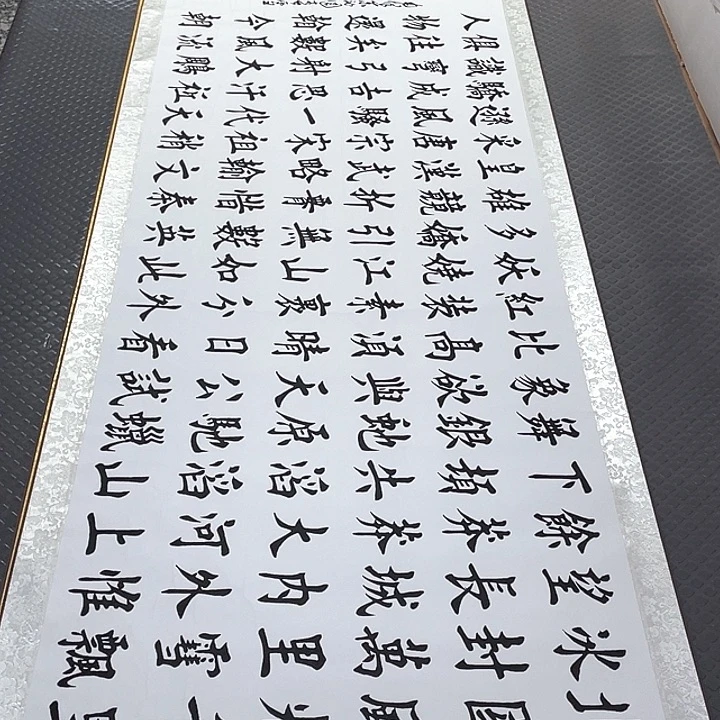 北國風光千里
冰封萬里雪飄
望長城內外惟
餘莽莽大河上
下頓失滔滔山
舞銀蛇原馳蠟
象欲與天公試
比高須晴日看
紅裝素裹分外
妖嬈江山如此
多嬌引無數英
雄競折腰惜秦
皇漢武略輸文
采唐宗宋祖稍
遜風騷一代天
驕成吉思汗祗
識彎弓射大鵰
俱往矣數風流
人物還看今朝